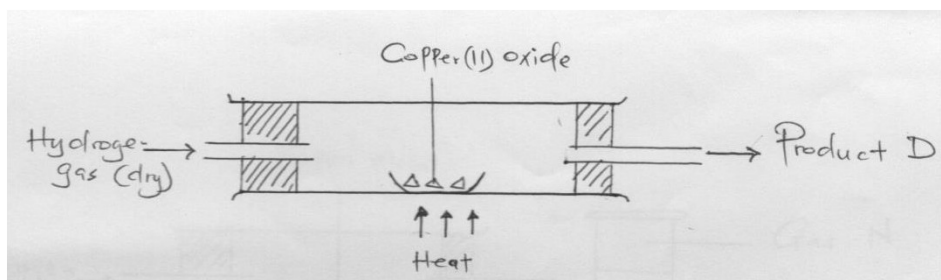 Copper(11) oxide
Hydroge-
gas (dry)
Product D
Heat